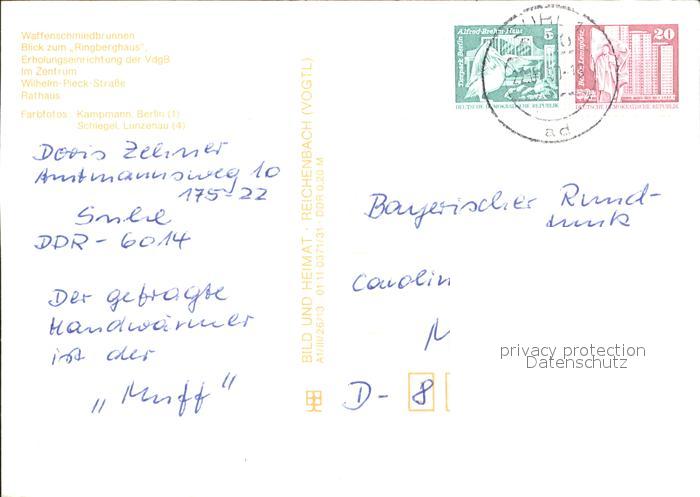 Waffenschmiedbrunnen
Blick zum „Ringberghaus",
Erholungseinrichtung der VdgB
Im Zentrum
Wilhelm-Pieck-Straße
Rathaus
Farbfotos: Kampmann, Berlin (1)
Schlegel, Lunzenau (4)
Doris Zehner
Amtmannsweg 10
175-22
Suhl
DDR - 6014
Der gefragte
Handwärmer
ist der
„Muff"
BILD UND HEIMAT · REICHENBACH (VOGTL)
A1/III/26/13 01 11 0371/31 DDR 0,20 M
Tierpark Berlin
Alfred-Brehm-Haus
5
DEUTSCHE DEMOKRATISCHE REPUBLIK
20
DEUTSCHE DEMOKRATISCHE REPUBLIK
SUHL 1
ad
Bayerischer Rund-
funk
Carolin
M
D - 8
privacy protection
Datenschutz